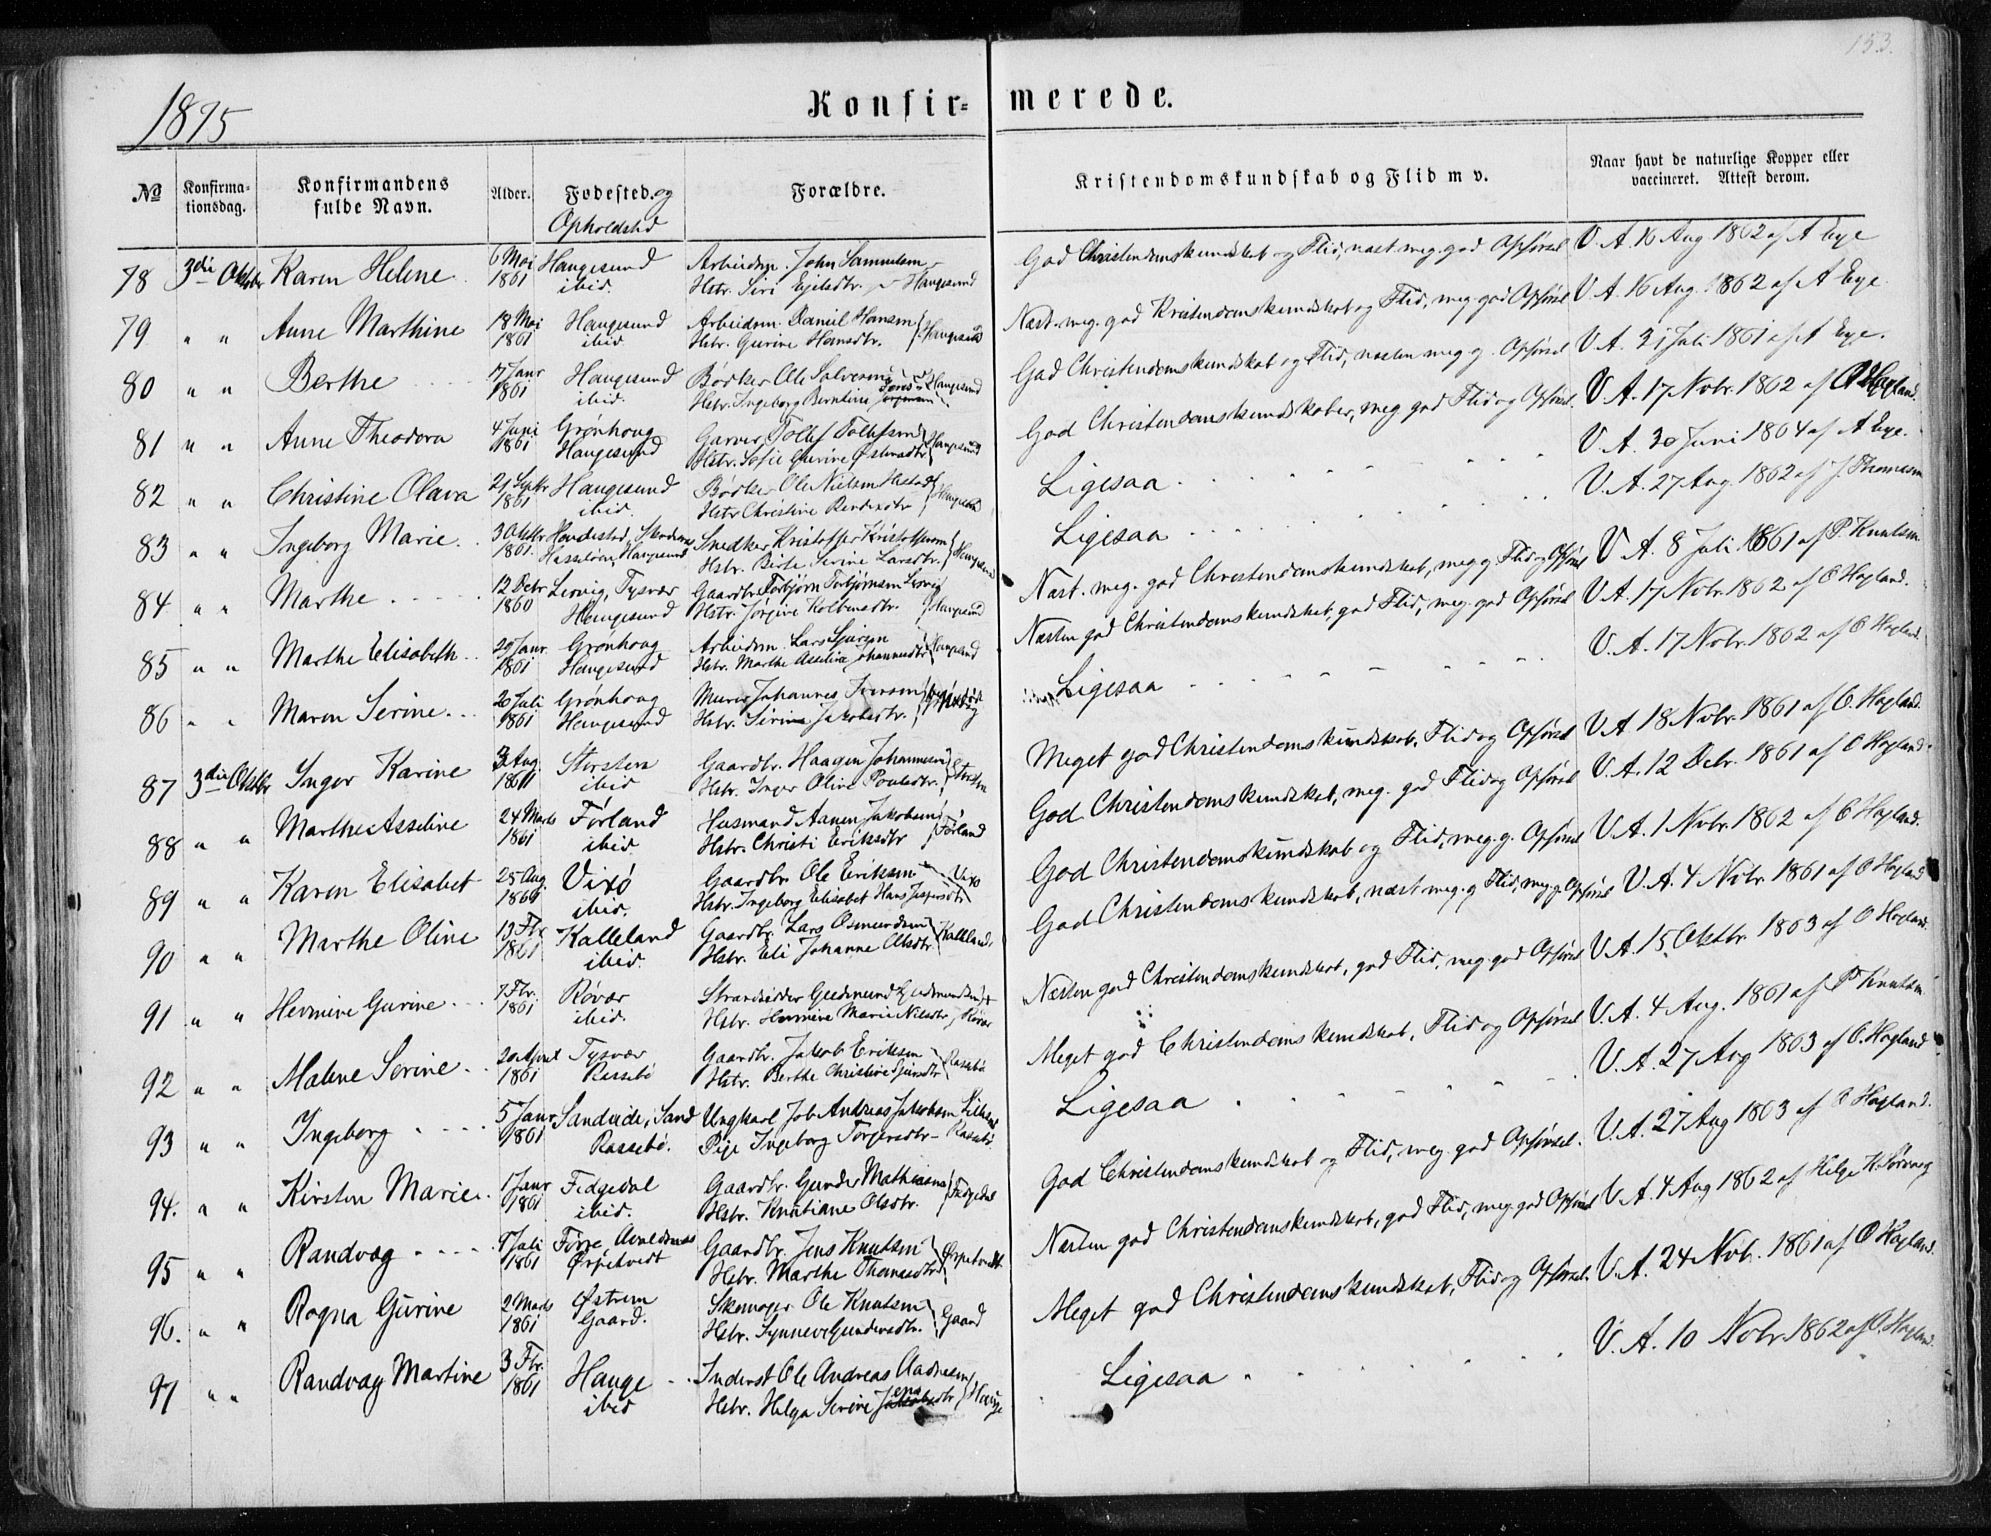 153.
1875
Konfir=merede.
№ Konfirma-tionsdag. Konfirmandens fulde Navn. Alder. Fødested og Opholdsted Forældre. Kristendomskundskab og Flid m v. Naar havt de naturlige Kopper eller vaccineret. Attest derom.
78 3die Oktober Karen Helene 6 Mai 1861 Haugesund ibid. Arbeidsm. John Samuelsen Hstr. Siri Ejelsdtr. Haugesund God Christendomskundskab og Flid, næst meg. god Opførsel V. A. 16 Aug 1862 af A Eye
79 " " Anne Marthine 18 Mai 1861 Haugesund ibid Arbeidsm. Daniel Hansen Hstr. Gurine Hansdtr. Haugesund Næst. meg. god Kristendomskundskab og Flid, meg. god Opførsel V. A. 16 Aug. 1862 af A Eye
80 " " Berthe 17 Janr 1861 Haugesund ibid. Bødker Ole Salvesen Hstr. Ingeborg Berntine Haugesund God Christendomskundskab og Flid, næsten meg g. Opførsel V. A. 31 Juli 1861 af A Eye.
81 " " Anne Theodora 4 Juni 1861 Grønhoug Haugesund Garver Tollef Tollefsen Hstr. Sofie Gurine Haugesund God Christendomskundskaber, meg god Flid og Opførsel V. A. 17 Nobr. 1862 af O Hagland.
82 " " Christine Olava 21 Septbr 1861 Haugesund ibid. Bødker Ole Nielsen Hstr Christine Haugesund Ligesaa V. A. 30 Juni 1864 af A Eye.
83 " " Ingeborg Marie 3 Oktbr 1861. Haugesund Snedker Kristoffer Kristoffersen Hstr. Birte Serine Larsdtr. Haugesund Ligesaa V. A. 27 Aug 1862 af J. Thomassen
84 " " Marthe 12 Debr 1860 Lervig, Tysvær Haugesund Gaardbr Torbjørn Torbjørnsen Lervig Hstr. Jørgine Kolbensdtr. Haugesund Næst. meg. god Christendomskundskab, meg g. Flid og Opførsel V. A. 8 Juli 1861 af P. Knutsen
85 " " Marthe Elisabeth 29 Janr 1861 Grønhoug Haugesund Arbeidsm. Lars Sjursen Hstr. Marthe Asseline Johannesdtr. Haugesund Næsten god Christendomskundskab, god Flid, meg. god Opførsel V. A. 17 Nobr. 1862 af O Hagland.
86 " " Maren Serine 20 Juli 1861 Grønhoug Haugesund Murer Johannes Iversen Hstr. Serine Jakobsdtr. Ligesaa V. A. 17 Nobr. 1862 af O Hagland
87 3die Oktbr Inger Karine 3 Aug. 1861 Storsten ibid Gaardbr. Haagen Johannesen Hstr. Inger Oline Poulsdtr. Storsten Meget god Christendomskundskab, Flid og Opførsel V. A. 18 Nobr. 1861 af O. Hagland.
88 " " Marthe Asseline 24 Marts 1861 Førland ibid Husmand Aanen Jakobsen Hstr. Christi Eriksdtr Førland God Christendomskundskab, meg. god Flid og Opførsel V. A. 12 Debr. 1861 af O Hagland.
89 " " Karen Elisabet 25 Aug. 1860 Vixø ibid. Gaardbr. Ole Eriksen Hstr. Ingeborg Elisabet Hans Jespersdtr Vixø God Christendomskundskab og Flid, meg. g. Opførsel V. A. 1 Nobr. 1862 af O Hagland.
90 " " Marthe Oline 13 Fbr. 1861 Kalleland ibid. Gaardbr. Lars Osmundsen Hstr. Eli Johanne Olsdtr. Kalleland. God Christendomskundskab, næst meg. g Flid, meg. g. Opførsel V. A. 4 Nobr. 1861 af O Hagland
91 " " Hermine Gurine 7 Fbr. 1861 Røvær ibid. Strandsidder Gudmund Gudmundsen Hstr. Hermine Marie Nilsdtr. Røvær Næsten god Christendomskundskab, god Flid, meg. god Opførsel V. A. 15 Oktbr. 1863 af O Hagland.
92 " " Malene Serine 20 April 1861 Tysvær Rassebø Gaardbr. Jakob Eriksen Hstr. Berthe Christine Sjursdtr Rassebø Meget god Christendomskundskab, Flid og Opførsel V. A. 4 Aug. 1861 af P Knutsen
93 " " Ingeborg 5 Janr 1861 Sandeide, Sand Rassebø. Ungkarl Job Andreas Jakobsen Pige Ingeborg Torgersdtr - Rassebø. Ligesaa V. A. 27 Aug 1863 af O. Hagland
94. " " Kirsten Marie 1 Janr 1861 Fedgedal ibid. Gaardbr. Gunder Mathiasen Hstr. Knutiane Olsdtr. Fedgedal God Christendomskundskab og Flid, meg. god Opførsel. V. A. 27 Aug 1863 af O Hagland.
95 " " Randvag 9 Juli 1861 Førre Avaldsnes Ørpetvedt Gaardbr. Jens Knutsen Hstr. Marthe Thomasdtr. Ørpetvedt. Næsten god Christendomskundskab, god Flid, meg. god Opførsel V. A. 4 Aug 1862 af Helge K. Sørvaag
96. " " Ragna Gurine 2 Marts 1861 Østrem Gaard. Skomager Ole Knutsen Hstr. Synneve Gundersdtr. Gaard Meget god Christendomskundskab, Flid og Opførsel. V. A. 24 Nob. 1861 af O Hagland.
97 " " Randvag Martine 3 Fbr. 1861 Hauge ibid Inderst Ole Andreas Aadnesen Hstr. Helga Serine Jensdtr Hauge Ligesaa V. A. 10 Nobr 1862 af O. Hagland.